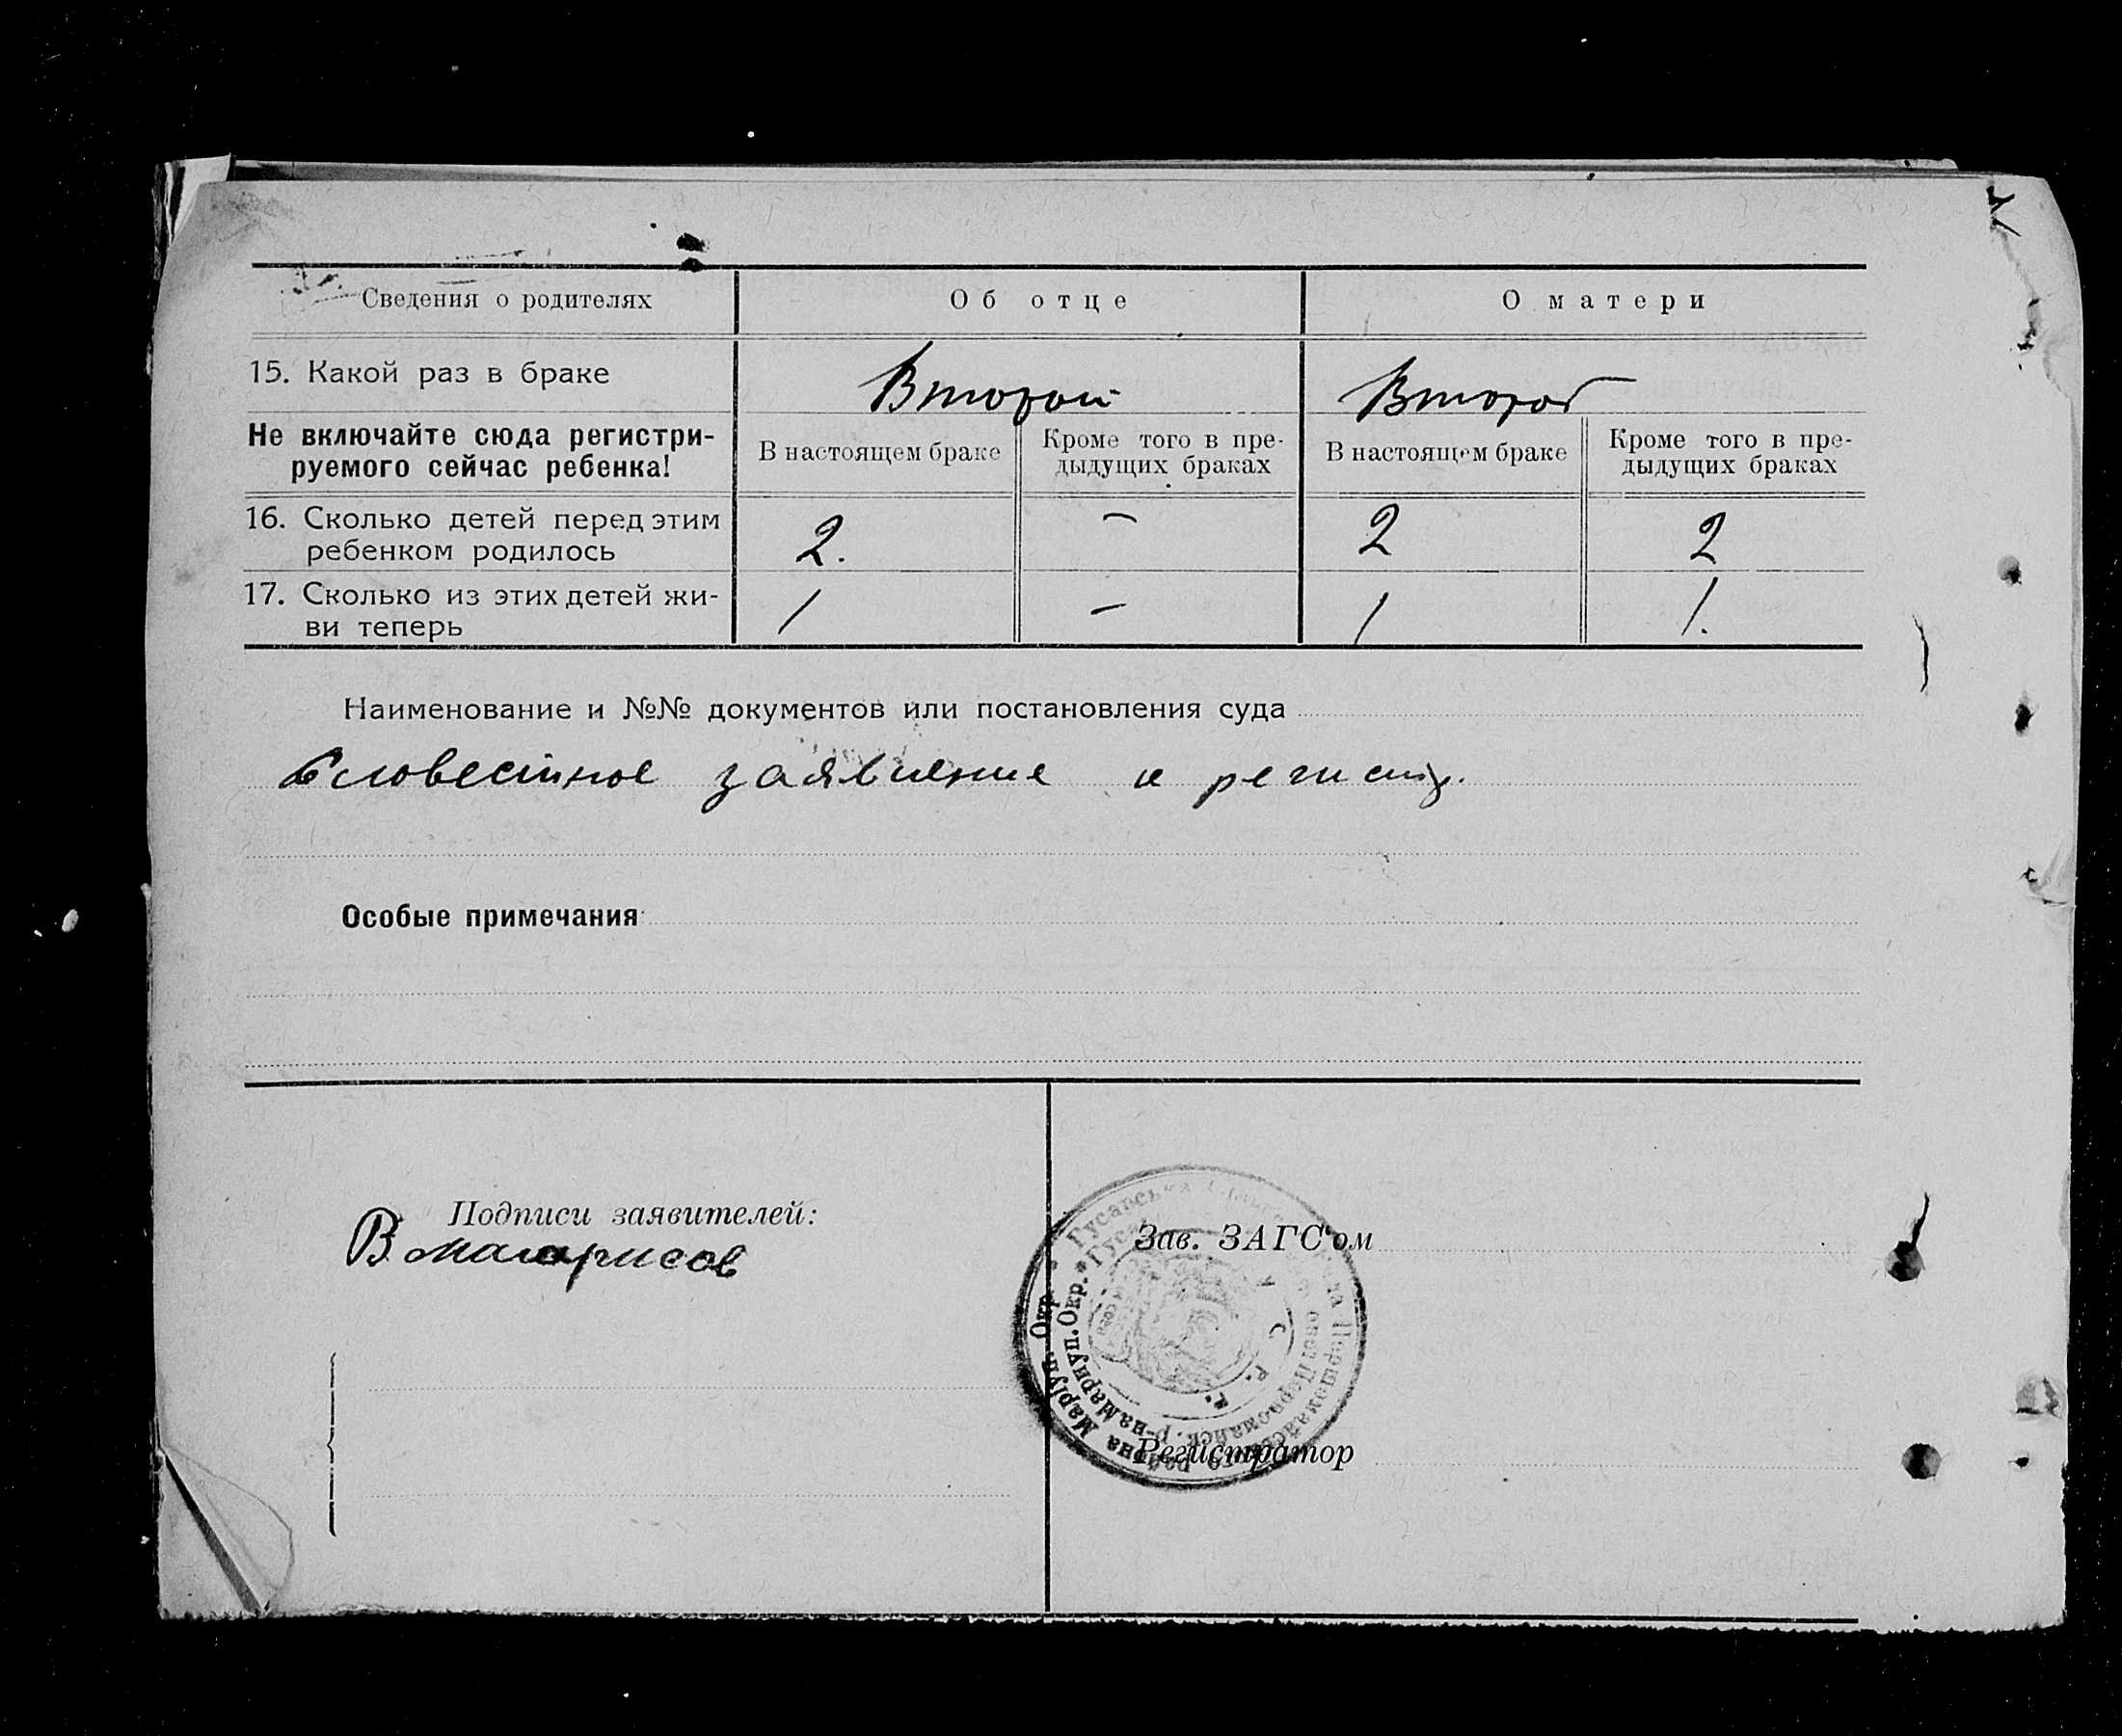 Сведения о родителях
Об отце
О матери
15. Какой раз в браке
Второй
Второй
Не включайте сюда регистри-
руемого сейчас ребенка!
В настоящем браке
Кроме того в пре-
дыдущих браках
В настоящем браке
Кроме того в пре-
дыдущих браках
16. Сколько детей перед этим
ребенком родилось
2.
–
2
2
17. Сколько из этих детей жи-
ви теперь
1
–
1
1.
Наименование и №№ документов или постановления суда
Словестное заявление и регистр.
Особые примечания
Подписи заявителей:
В
Зав. ЗАГС'ом
Регистратор
Гусавська Першомайськ. Маріуп. Окр.
Первомайск. р-на Мариуп. Окр.